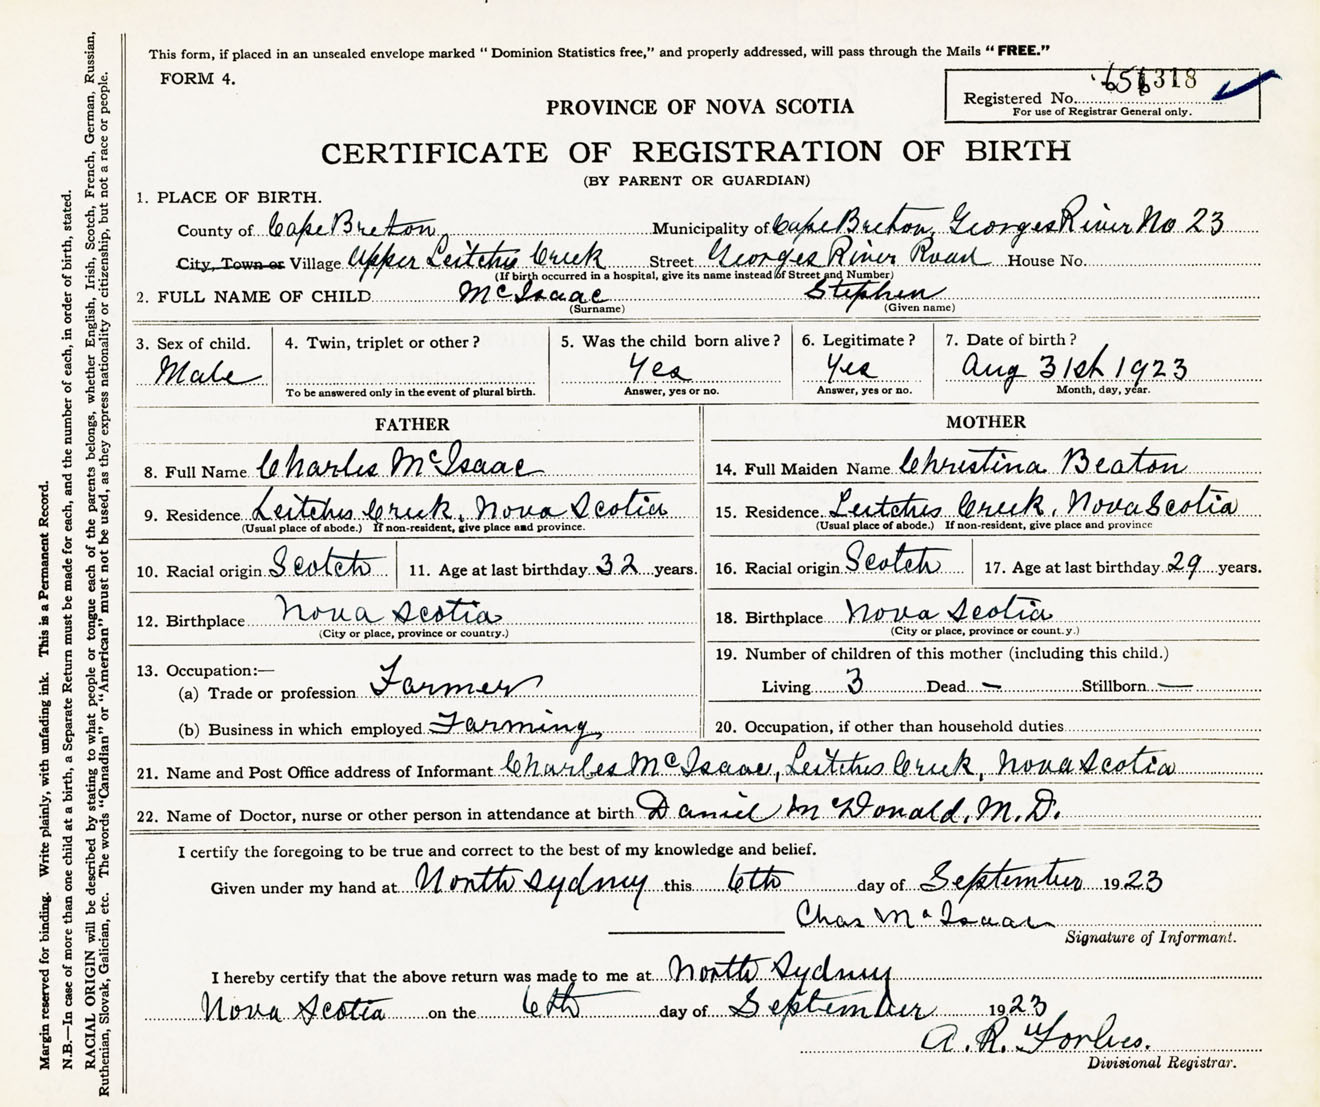 This form, if placed in an unsealed envelope marked "Dominion Statistics free," and properly addressed, will pass through the Mails "FREE."
FORM 4.
318
Registered No.
For use of Registrar General only.
PROVINCE OF NOVA SCOTIA
CERTIFICATE OF REGISTRATION OF BIRTH
(BY PARENT OR GUARDIAN)
1. PLACE OF BIRTH.
County of Cape Breton Municipality of Cape Breton, Georges River No 23
City, Town or Village Upper Leitches Creek Street Georges River Road House No.
(If birth occurred in a hospital, give its name instead of Street and Number)
2. FULL NAME OF CHILD McIsaac Stephen
(Surname) (Given name)
3. Sex of child. 4. Twin, triplet or other? 5. Was the child born alive? 6. Legitimate? 7. Date of birth?
Male Yes Yes Aug 31st 1923
To be answered only in the event of plural birth. Answer, yes or no. Answer, yes or no. Month, day, year.
FATHER
8. Full Name Charles McIsaac
9. Residence Leitches Creek, Nova Scotia
(Usual place of abode.) If non-resident, give place and province.
10. Racial origin Scotch 11. Age at last birthday 32 years.
12. Birthplace Nova Scotia
(City or place, province or country.)
13. Occupation:—
(a) Trade or profession Farmer
(b) Business in which employed Farming
MOTHER
14. Full Maiden Name Christina Beaton
15. Residence Leitches Creek, Nova Scotia
(Usual place of abode.) If non-resident, give place and province
16. Racial origin Scotch 17. Age at last birthday 29 years.
18. Birthplace Nova Scotia
(City or place, province or count.y.)
19. Number of children of this mother (including this child.)
Living 3 Dead — Stillborn —
20. Occupation, if other than household duties
21. Name and Post Office address of Informant Charles McIsaac, Leitches Creek, Nova Scotia
22. Name of Doctor, nurse or other person in attendance at birth Daniel McDonald, M.D.
I certify the foregoing to be true and correct to the best of my knowledge and belief.
Given under my hand at North Sydney this 6th day of September 1923
Chas McIsaac
Signature of Informant.
I hereby certify that the above return was made to me at North Sydney
Nova Scotia on the 6th day of September 1923
A. R. Forbes.
Divisional Registrar.
Margin reserved for binding. Write plainly, with unfading ink. This is a Permanent Record.
N.B.—In case of more than one child at a birth, a Separate Return must be made for each, and the number of each, in order of birth, stated.
RACIAL ORIGIN will be described by stating to what people or tongue each of the parents belongs, whether English, Irish, Scotch, French, German, Russian,
Ruthenian, Slovak, Galician, etc. The words "Canadian" or "American" must not be used, as they express nationality or citizenship, but not a race or people.